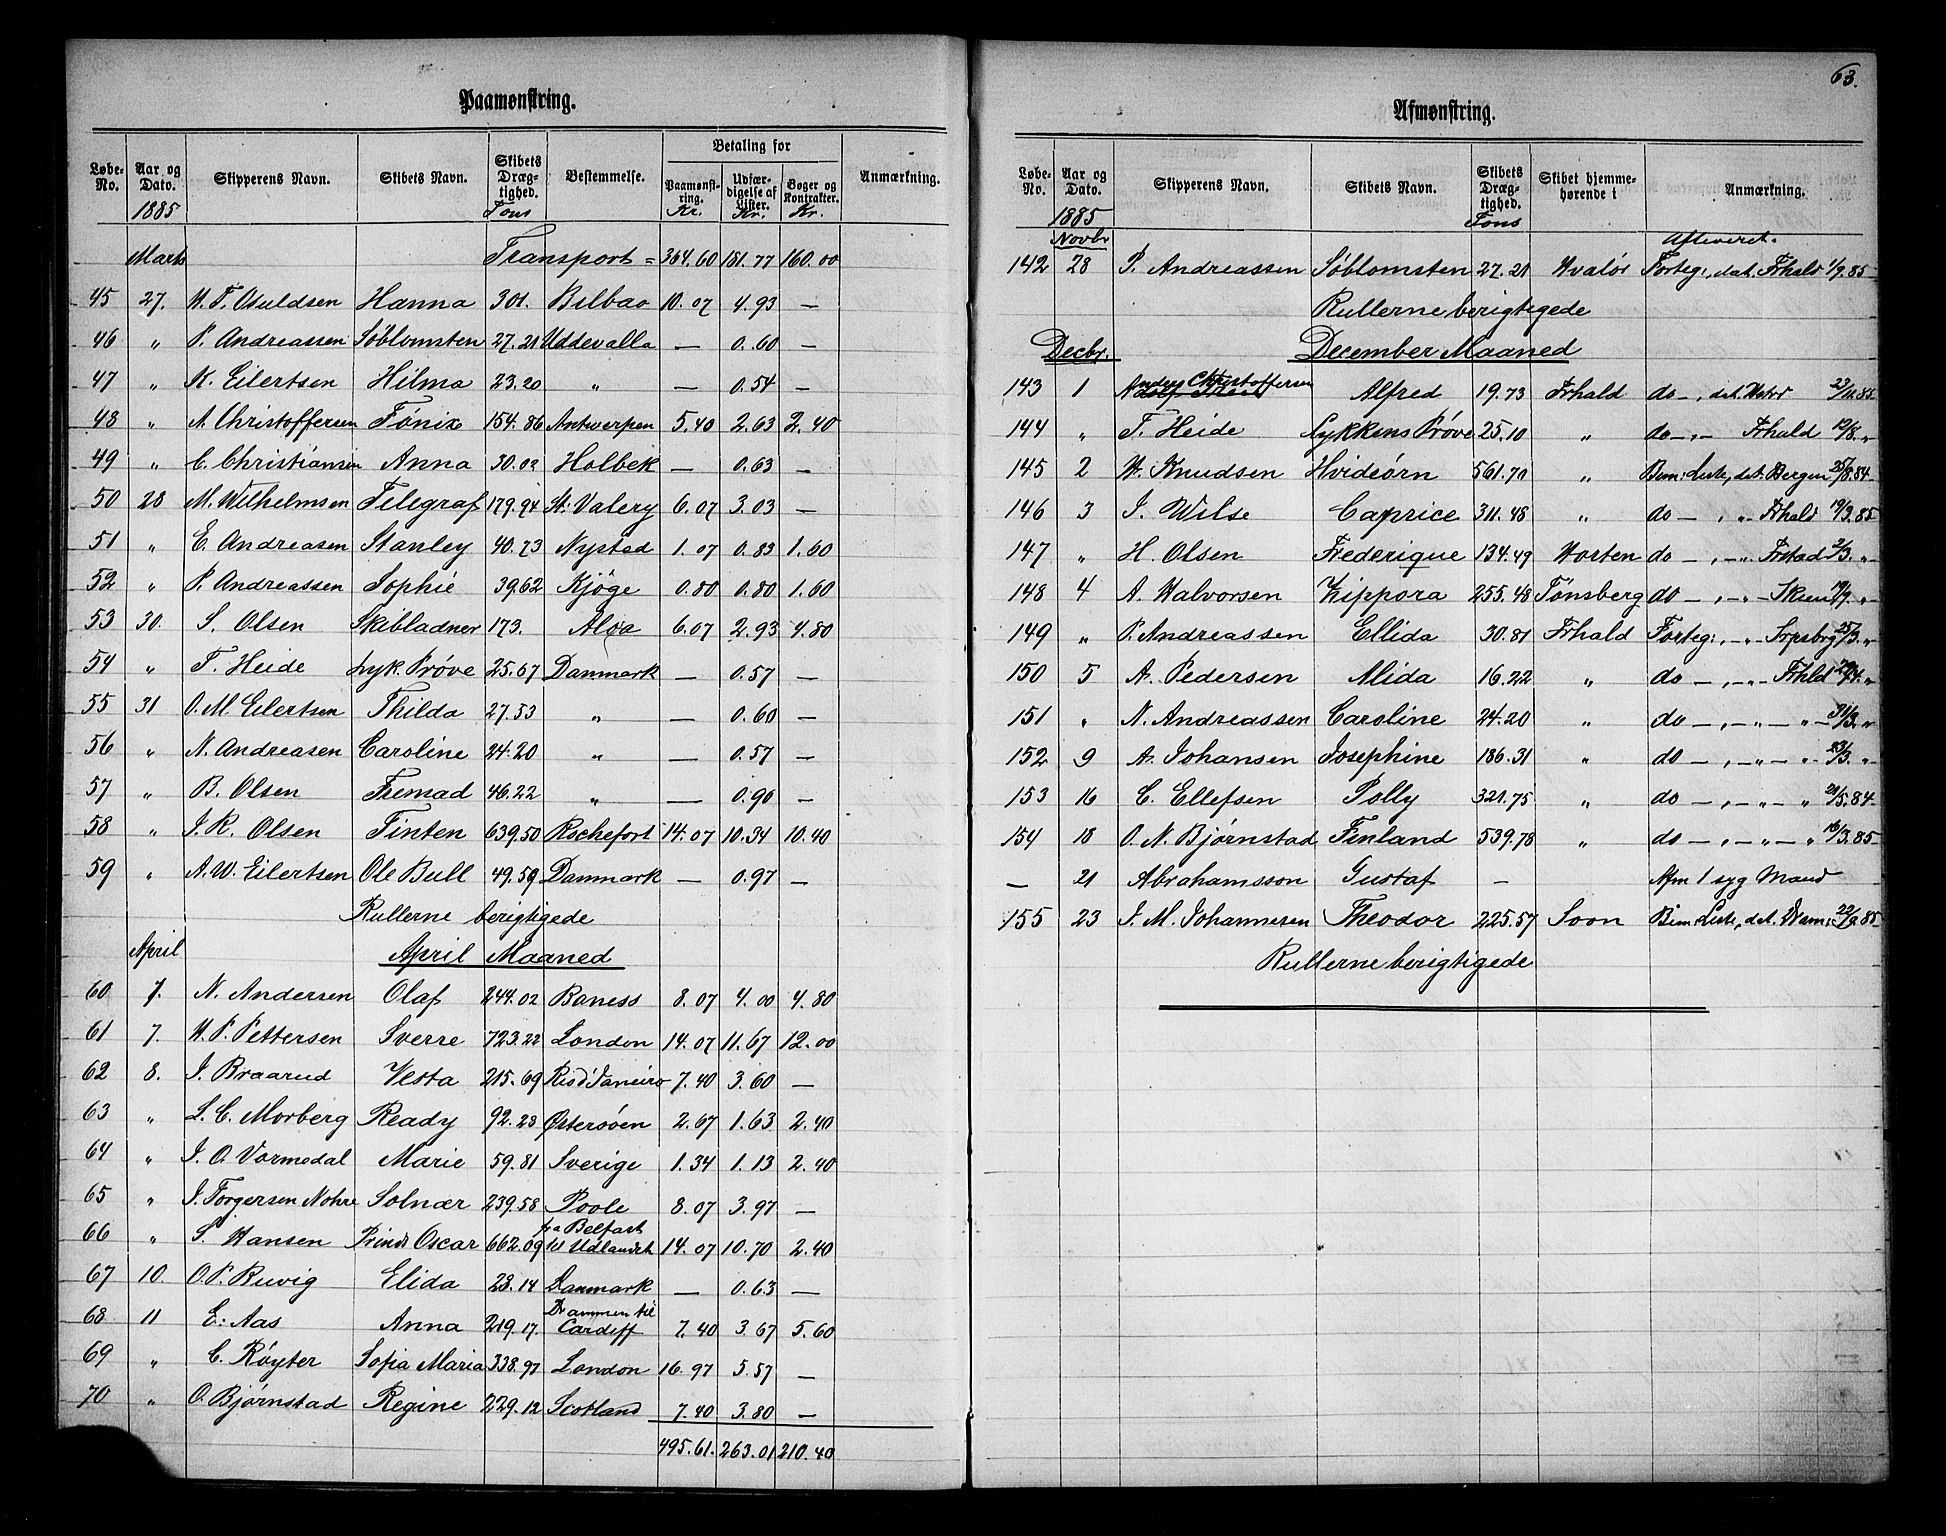 Paamønstring.
Løbe-No. | Aar og Dato. 1885 | Skipperens Navn. | Skibets Navn. | Skibets Dræg-tighed. Tons | Bestemmelse. | Betaling for Paamønst-ring. Kr. | Udfær-digelse af Lister. Kr. | Bøger og Kontrakter. Kr. | Anmærkning.
Marts Transport = 364.60 181.77 160.00
45 27. H. T. Osuldsen Hanna 301. Bilbao 10.07 4.93 —
46 " P. Andreassen Søblomsten 27.21 Uddevalla — 0.60 —
47 " K. Eilertsen Hilma 23.20 " — 0.54 —
48 " A. Christoffersen Fønix 154.86 Antwerpen 5.40 2.63 2.40
49 " C. Christiansen Anna 30.02 Holbek — 0.63 —
50 28 M. Wilhelmsen Telegraf 179.94 St. Valery 6.07 3.03 —
51 " E. Andreasen Stanley 40.73 Nysted 1.07 0.83 1.60
52 " P. Andreassen Sophie 39.62 Kjøge 0.80 0.80 1.60
53 30. S. Olsen Skibladner 173. Aloa 6.07 2.93 4.80
54 " T. Heide Lyk. Prøve 25.67 Danmark — 0.57 —
55 31 O. M. Eilertsen Thilda 27.53 " — 0.60 —
56 " N. Andreasen Caroline 24.20 " — 0.57 —
57 " B. Olsen Fremad 46.22 " — 0.90 —
58 " J. R. Olsen Tinten 639.50 Rochefort 14.07 10.34 10.40
59 " A. W. Eilertsen Ole Bull 49.59 Danmark — 0.97 —
Rullerne berigtigede
April April Maaned
60 7. N. Andersen Olaf 244.02 Baness 8.07 4.00 4.80
61 7. H. P. Pettersen Sverre 723.22 London 14.07 11.67 12.00
62 8. J. Braarud Vesta 215.69 Rio d'Janeiro 7.40 3.60 —
63 " L. C. Morberg Ready 92.23 Østersøen 2.67 1.63 2.40
64 " J. O. Vormedal Marie 59.81 Sverige 1.34 1.13 2.40
65 " J. Torgersen Nohre Solnær 239.58 Poole 8.07 3.97 —
66 " S. Hansen Prinds Oscar 662.09 fra Belfast til Udlandet 14.07 10.70 2.40
67 10 O. P. Ruvig Elida 28.14 Danmark — 0.63 —
68 11 E. Aas Anna 219.17. Drammen til Cardiff 7.40 3.67 5.60
69 " C. Røyter Sofia Maria 338.97 London 16.97 5.57 —
70 " O. Bjørnstad Regine 229.12 Scotland 7.40 3.80 —
495.61. 263.01 210.40
63.
Afmønstring.
Løbe-No. | Aar og Dato. 1885 | Skipperens Navn. | Skibets Navn. | Skibets Dræg-tighed. Tons | Skibet hjemme-hørende i | Anmærkning.
Novbr Afleveret.
142 28 P. Andreassen Søblomsten 27.21 Hvalør Forteg:, dat. Frhald 1/9.85
Rullerne berigtigede
Decbr. December Maaned
143 1 Anders Christoffersen Alfred 19.73 Frhald do —, dat.
144 " T. Heide Lykkens Prøve 25.10 " do —"— Frhald 12/8. "
145 2 H. Knudsen Hvideørn 561.70 " Bem: Liste, dat. Bergen 25/8.84
146 3 J. Wilse Caprice 311.48 " do —, " Frhald 19/3.85
147 " H. Olsen Frederique 134.49 Horten do —, —"— Frstad 2/3. "
148 4 A. Halvorsen Zippora 255.48 Tønsberg do —, —"— Sksund 19/9. "
149 " P. Andreassen Ellida 30.81 Frhald Forteg:, —"— Srpsbrg 25/3. "
150 5 A. Pedersen Alida 16.22 " do —, —"— Frhld 29/4. "
151 " N. Andreassen Caroline 24.20 " do —, — " — " — 31/3. "
152 9 A. Johansen Josephine 186.31 " do —, — " — " 23/3. "
153 16 C. Ellefsen Polly 321.75 " do —, — " — " 21/5.84
154 18 O. N. Bjørnstad Finland 539.78 " do —, — " — " 16/3.85
— 21 Abrahamsson Gustaf — Afm 1 syg Mand
155 23 J. M. Johannesen Theodor 225.57 Soon Bem: Liste, dat. Dram: 22/9.85
Rullerne berigtigede